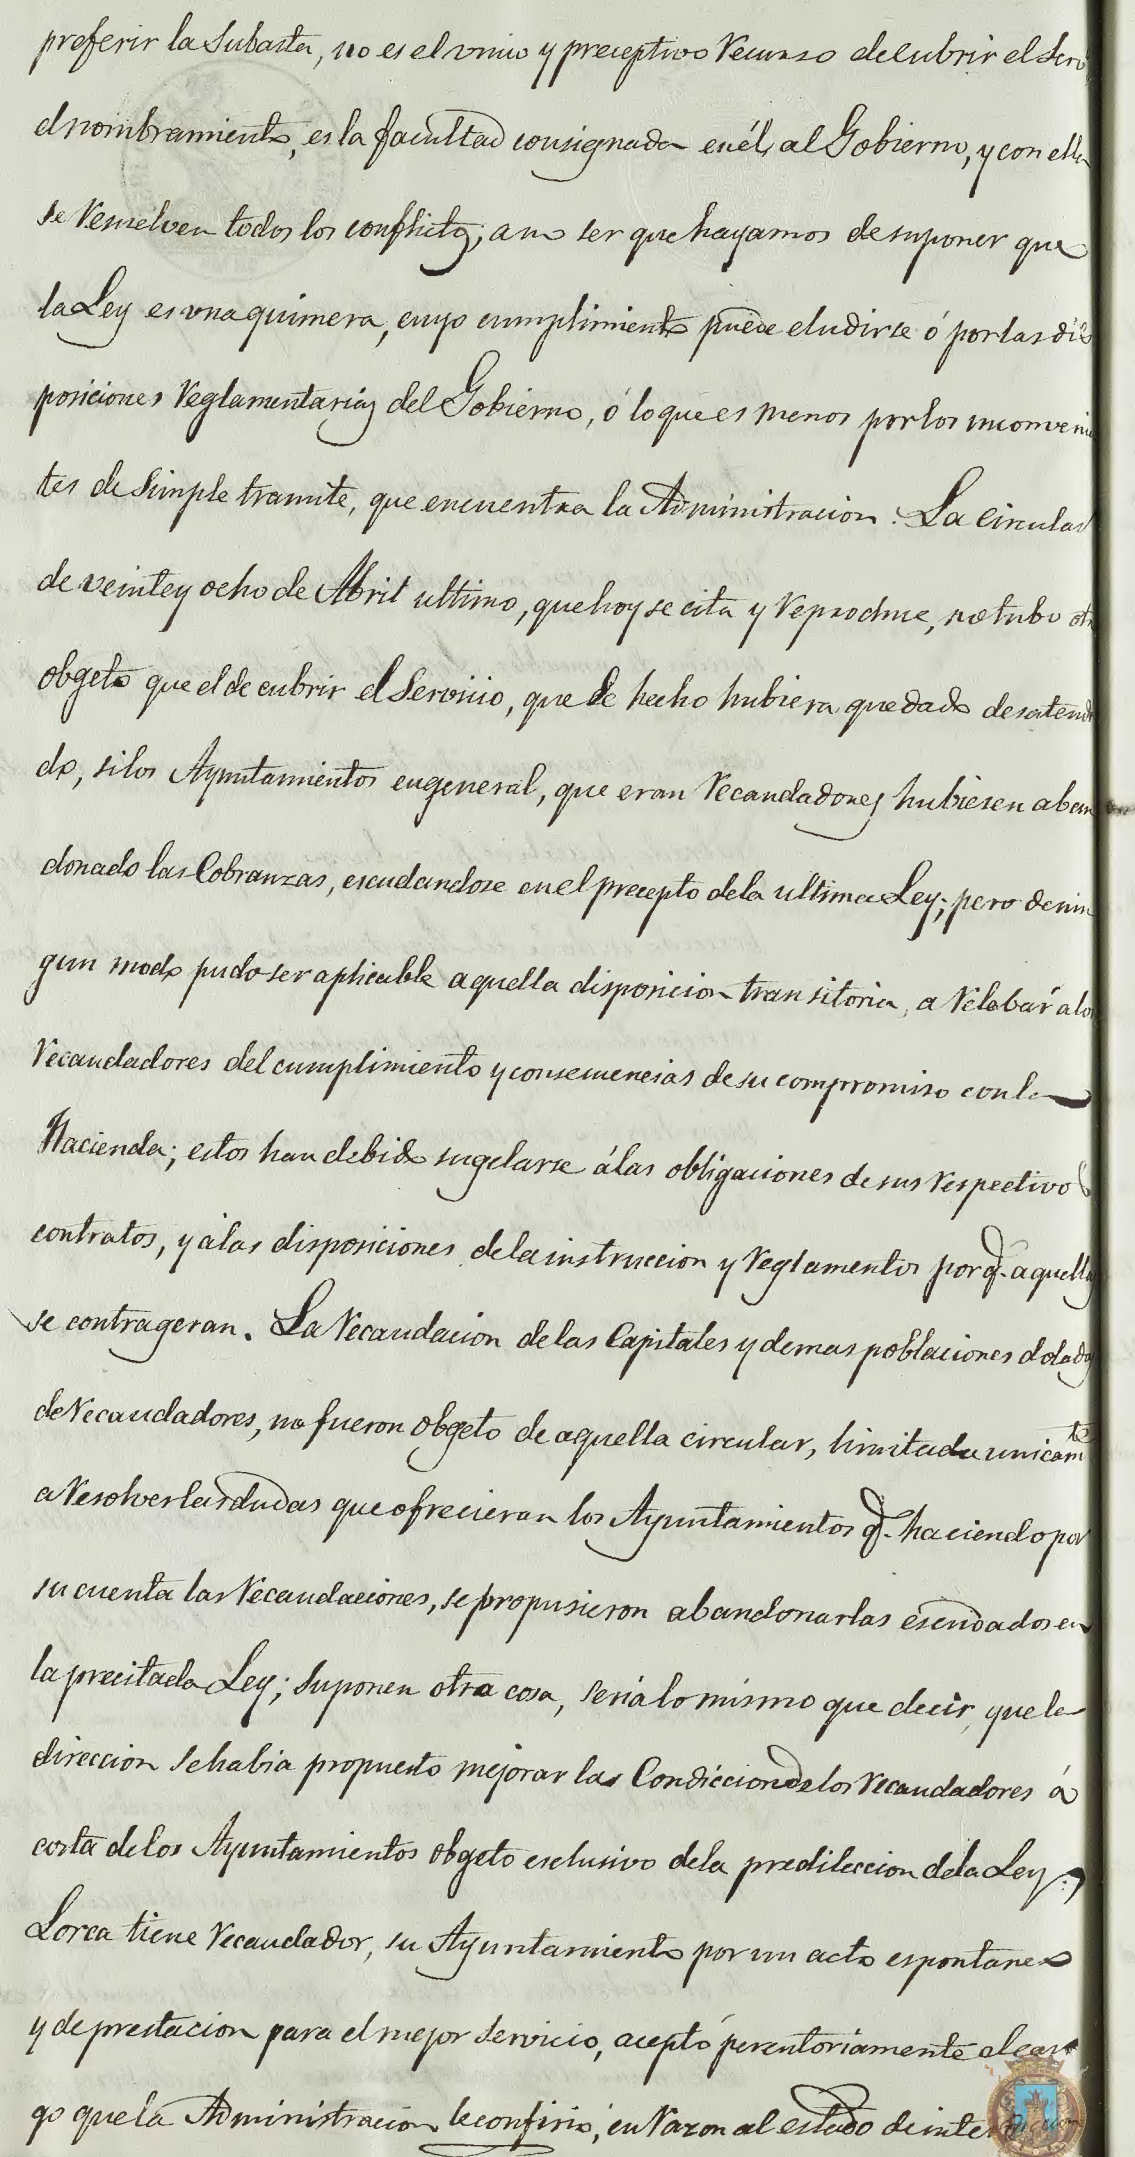 preferir la Subasta, no es el vnico y preceptivo recurso de cubrir el Serv
el nombramiento, es la facultad consignada en él, al Gobierno, y con ella
se resuelven todos los conflictos, a no ser que hayamos de suponer que
la Ley es vna quimera, cuyo cumplimiento puede eludirse ó por las dis
posiciones reglamentarias del Gobierno, ó lo que es menos por los inconvenien
tes de Simple tramite, que encuentra la Administracion. La Circular
de veinte y ocho de Abril ultimo, que hoy se cita y reproduce, no tubo otro
obgeto que el de cubrir el Servicio, que de hecho hubiera quedado desatendi
do, si los Ayuntamientos en general, que eran recaudadores hubiesen aban
donado las Cobranzas, escudandose en el precepto de la ultima Ley; pero de nin
gun modo pudo ser aplicable aquella disposicion transitoria, a relebar a los
recaudadores del cumplimiento y consecuencias de su compromiso con la
Hacienda; estos han debido sugetarse á las obligaciones de sus respectivos
contratos, y á las disposiciones de la instruccion y reglamentos por q. aquellos
se contrageran. La recaudacion de las Capitales y demas poblaciones dotadas
de recaudadores, no fueron obgeto de aquella circular, limitada unicamte
a resolver las dudas que ofrecieran los Ayuntamientos q. haciendo por
su cuenta las recaudaciones, se propusieron abandonarlas escudados en
la precitada Ley; Suponer otra cosa, seria lo mismo que decir, que la
direccion se habia propuesto mejorar las Condicciones de los recaudadores á
costa de los Ayuntamientos obgeto esclusivo de la predileccion de la Ley.
Lorca tiene recaudador, su Ayuntamiento por un acto espontaneo
y de prestacion para el mejor Servicio, aceptó perentoriamente el car
go que la Administracion le confirió, en razon al estado de